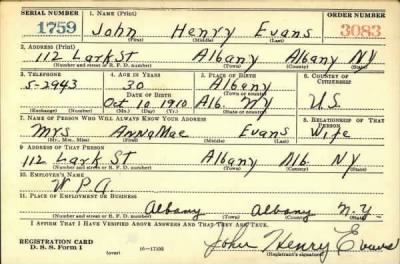 SERIAL NUMBER 1. NAME (Print) ORDER NUMBER
1759 John Henry Evans 3083
(First) (Middle) (Last)
2. ADDRESS (Print)
112 Lark St Albany Albany NY
(Number and street or R. F. D. number) (Town) (County) (State)
3. TELEPHONE 4. AGE IN YEARS 5. PLACE OF BIRTH 6. COUNTRY OF CITIZENSHIP
5-2943 30 Albany
DATE OF BIRTH (Town or county)
Oct 10, 1910 Alb. NY U.S.
(Exchange) (Number) (Mo.) (Day) (Yr.) (State or country)
7. NAME OF PERSON WHO WILL ALWAYS KNOW YOUR ADDRESS 8. RELATIONSHIP OF THAT PERSON
Mrs AnnaMae Evans Wife
(Mr., Mrs., Miss) (First) (Middle) (Last)
9. ADDRESS OF THAT PERSON
112 Lark St Albany Alb. NY
(Number and street or R. F. D. number) (Town) (County) (State)
10. EMPLOYER'S NAME
W P A.
11. PLACE OF EMPLOYMENT OR BUSINESS
Albany Albany N.Y.
(Number and street or R. F. D. number) (Town) (County) (State)
I AFFIRM THAT I HAVE VERIFIED ABOVE ANSWERS AND THAT THEY ARE TRUE.
REGISTRATION CARD
D. S. S. Form 1 (over) 16-17105 John Henry Evans
(Registrant's signature)